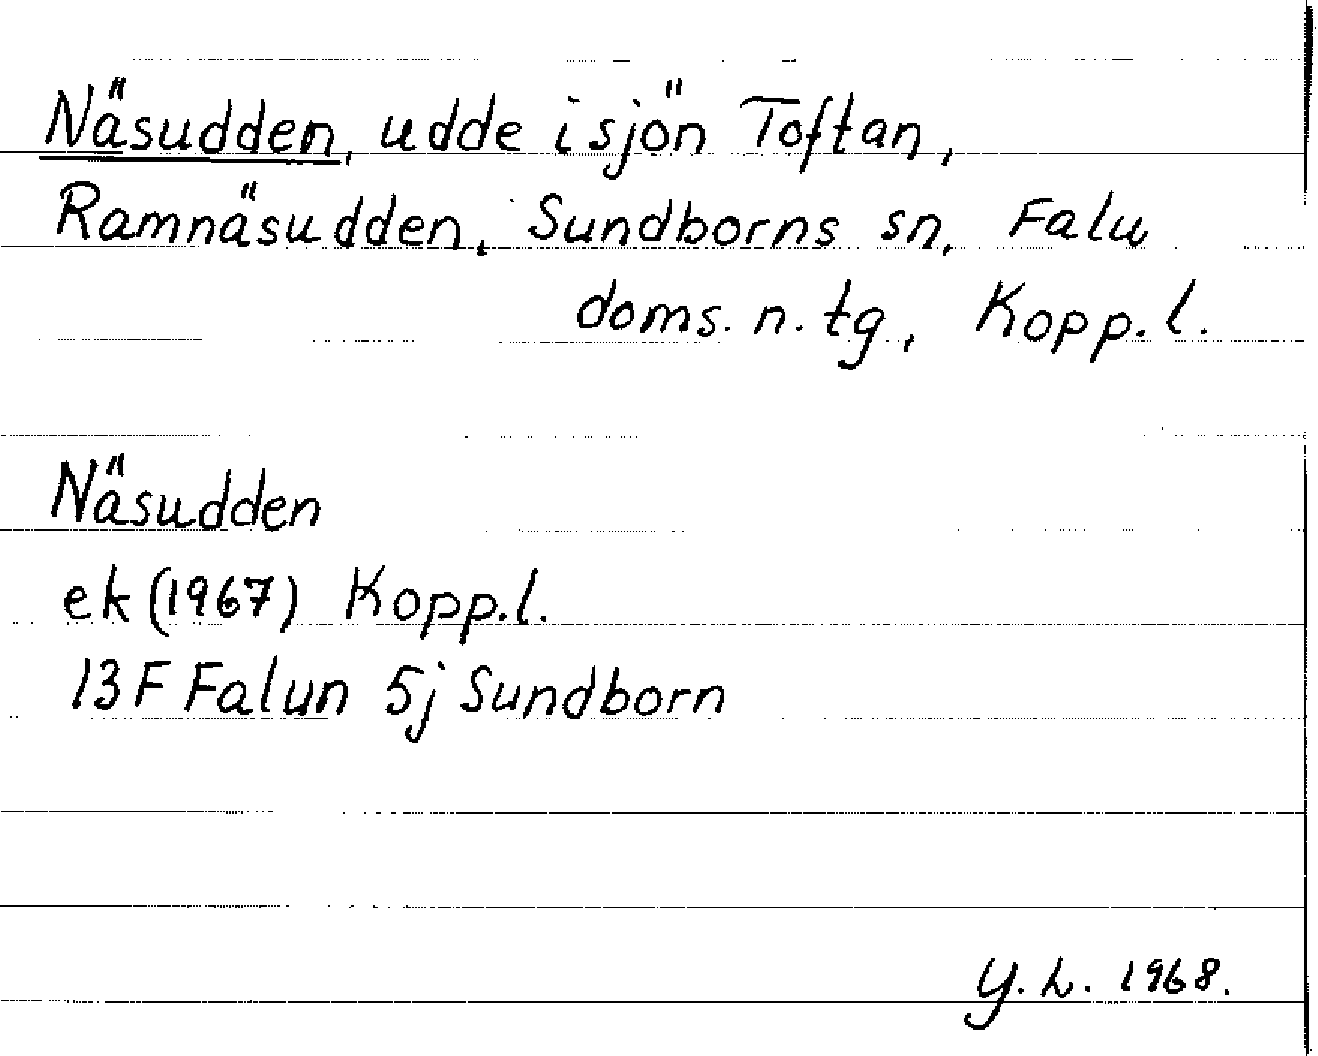 Näsudden, udde i sjön Toftan,
Ramnäsudden, Sundborns sn, Falu
doms. n. tg, Kopp. l.
Näsudden
ek (1967) Kopp.l.
13F Falun 5j Sundborn
Y. L. 1968.